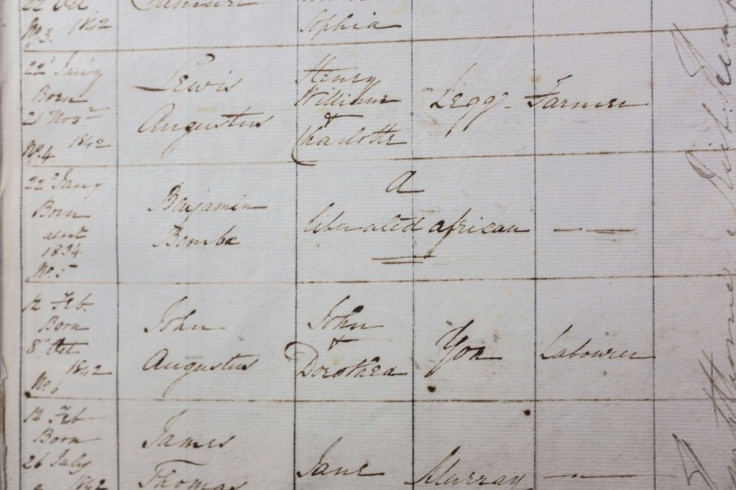 22 Oct
No. 3. 1842
Sophia
22d Jany
Born
21 Novr
1842
No. 4.
Lewis
Augustus
Henry
William
&
Charlotte
Legg
Farmer
22 Jany
Born
about
1834
No. 5
Benjamin
Bembe
A
liberated african
12 Feb.
Born
8th Oct
1842
No. 6
John
Augustus
John
&
Dorothea
Yon
Labourer
12 Feb
Born
26 July
1842
James
Thomas
Jane
Murray